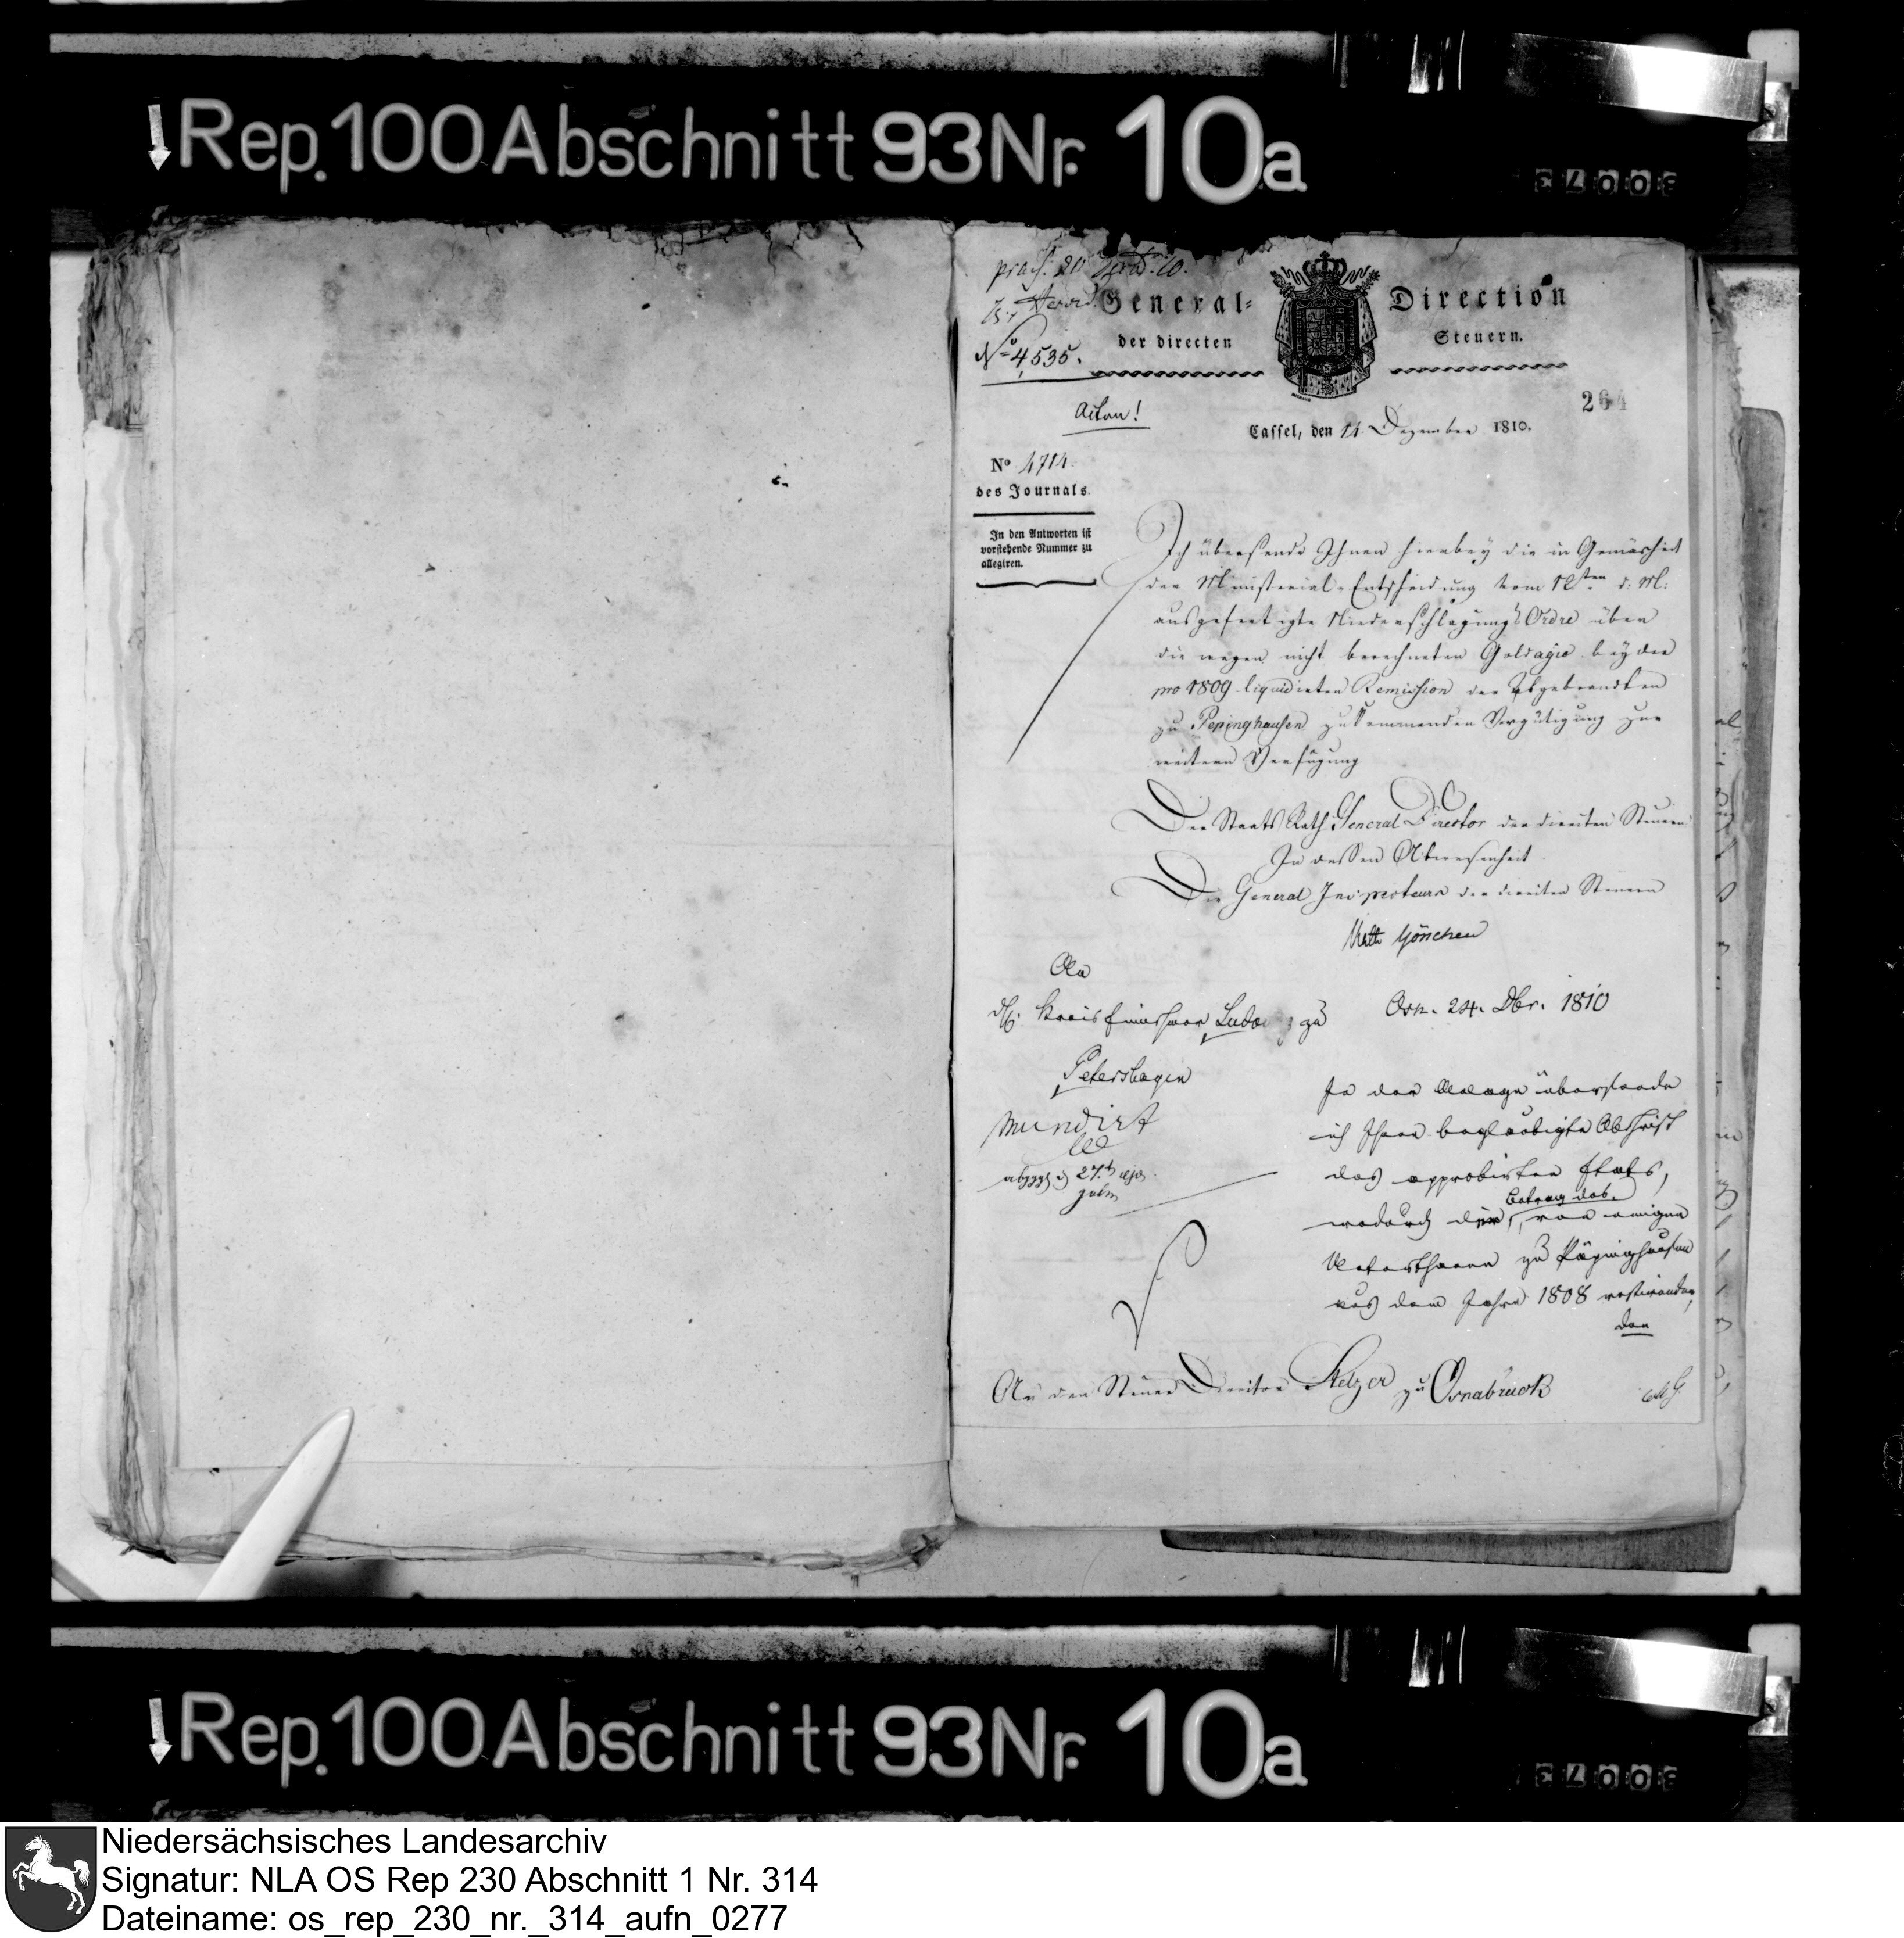 Rep. 100 Abschnitt 93 Nr. 10a
praes. 20 10.
No 4,535.
General-Direction
der directen Steuern.
264
Cassel, den 14 Dezember 1810.
No 4714
des Journals.
In den Antworten ist
vorstehende Nummer zu
allegiren.
Ich übersende Ihnen hierbey die in Gemäsheit
der Ministerial-Entscheidung vom 12ten d: M:
ausgefertigte Niederschlagungs Ordre über
die wegen nicht berechneten Goldagio bey der
pro 1809 liquidirten Remission der Abgebrandten
zu Pepinghausen zukommenden Vergütigung zur
weitern Verfügung
Der Staats Rath General Director der directen Steuern
In dessen Abwesenheit
Die General Inspecteurs der directen Steuern
An
Kreis Einnehmer zu
Petershagen
mundirt
Osn. 24. Dbr. 1810
In der Anlage übersende
ich Ihnen beglaubigte Abschrift
des approbirten Etats,
Betrag des
wodurch der von einigen
Unterthanen zu Päpinghausen
aus dem Jahre 1808 restirenden
An den Steuer Director zu Osnabrück
Rep. 100 Abschnitt 93 Nr. 10a
Niedersächsisches Landesarchiv
Signatur: NLA OS Rep 230 Abschnitt 1 Nr. 314
Dateiname: os_rep_230_nr._314_aufn_0277